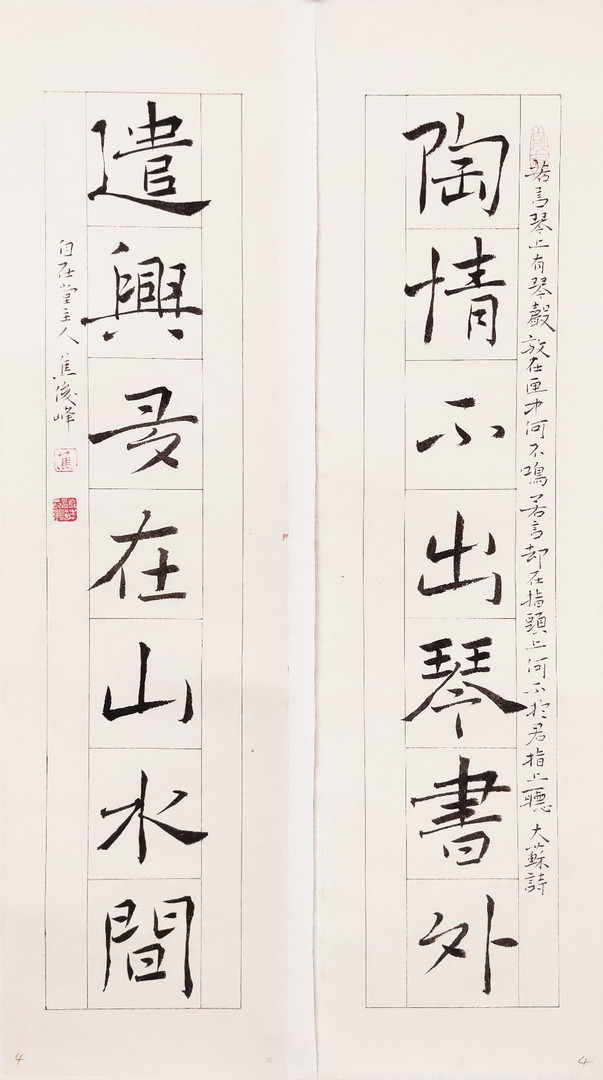 若言琴上有琴聲放在匣中何不鳴若言却在指頭上何不於君指上聽 大蘇詩
陶情不出琴書外
遣興在山水間
自在堂主人 焦俊峰
焦
4
4